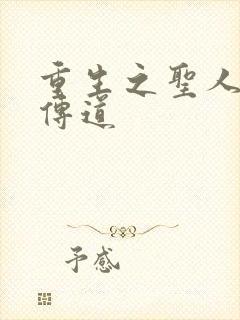 重生之聖人
傳道
予感